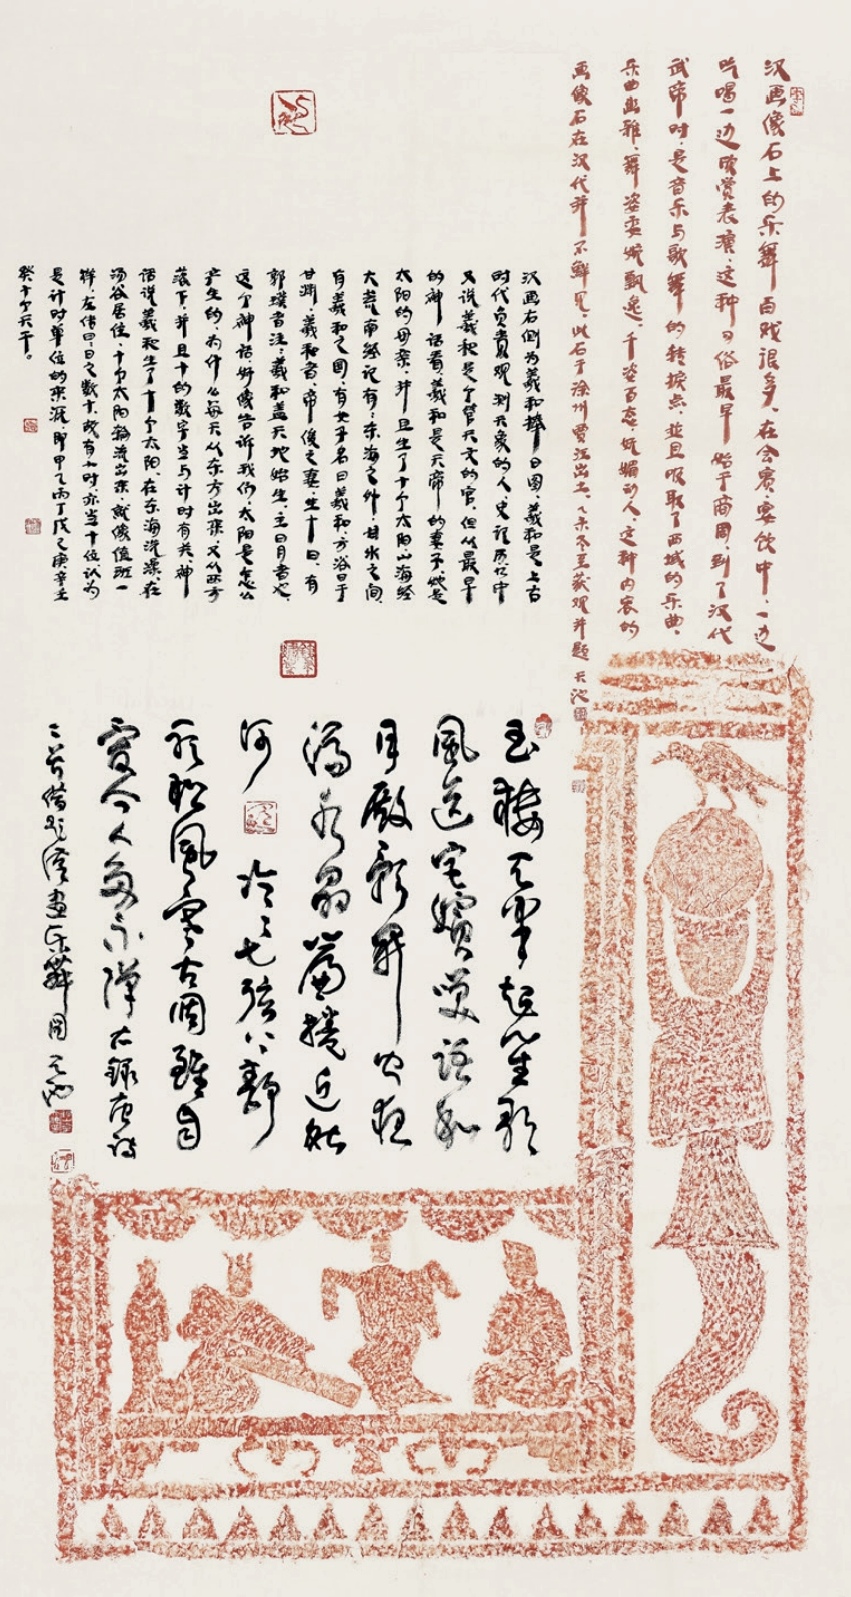 汉画像石上的乐舞百戏很多，在会宾、宴饮中，一边
吃喝一边欣赏表演，这种习俗最早始于商周，到了汉代
武帝时，是音乐与歌舞的转捩点，并且吸取了西域的乐曲，
乐曲幽雅，舞姿柔婉飘逸，千姿百态，妩媚动人，这种内容的
画像石在汉代并不鲜见，此石于徐州贾汪出土，乙未冬至获观并题 天池
汉画右侧为羲和捧日图，羲和是上古
时代负责观测天象的人，史记历书中
又说羲和是个管天文的官，但从最早
的神话看，羲和是天帝的妻子，她是
太阳的母亲，并且生了十个太阳，山海经
大荒南经记有：东海之外，甘水之间，
有羲和之国，有女子名曰羲和，方浴日于
甘渊，羲和者，帝俊之妻，生十日，有
郭璞者注：羲和盖天地始生，主日月者也，
这个神话，好像告诉我们，太阳是怎么
产生的，为什么每天从东方出来，又从西方
落下，并且十的数字当与计时有关，神
话说羲和生了十个太阳，在东海洗澡，在
汤谷居住，十个太阳轮流出来，就像值班一
样，左传曰：日之数十，故有十时，亦当十位，认为
是计时单位的来源，即甲乙丙丁戊己庚辛壬
癸十个天干。
玉樓天半起笙歌
風送宮嬪笑語和
月殿影開聞夜
漏水晶簾捲近秋
河 泠泠七弦上靜
聽松風寒古調雖自
愛今人多不彈右録唐詩
二首借题漢畫乐舞图 天池